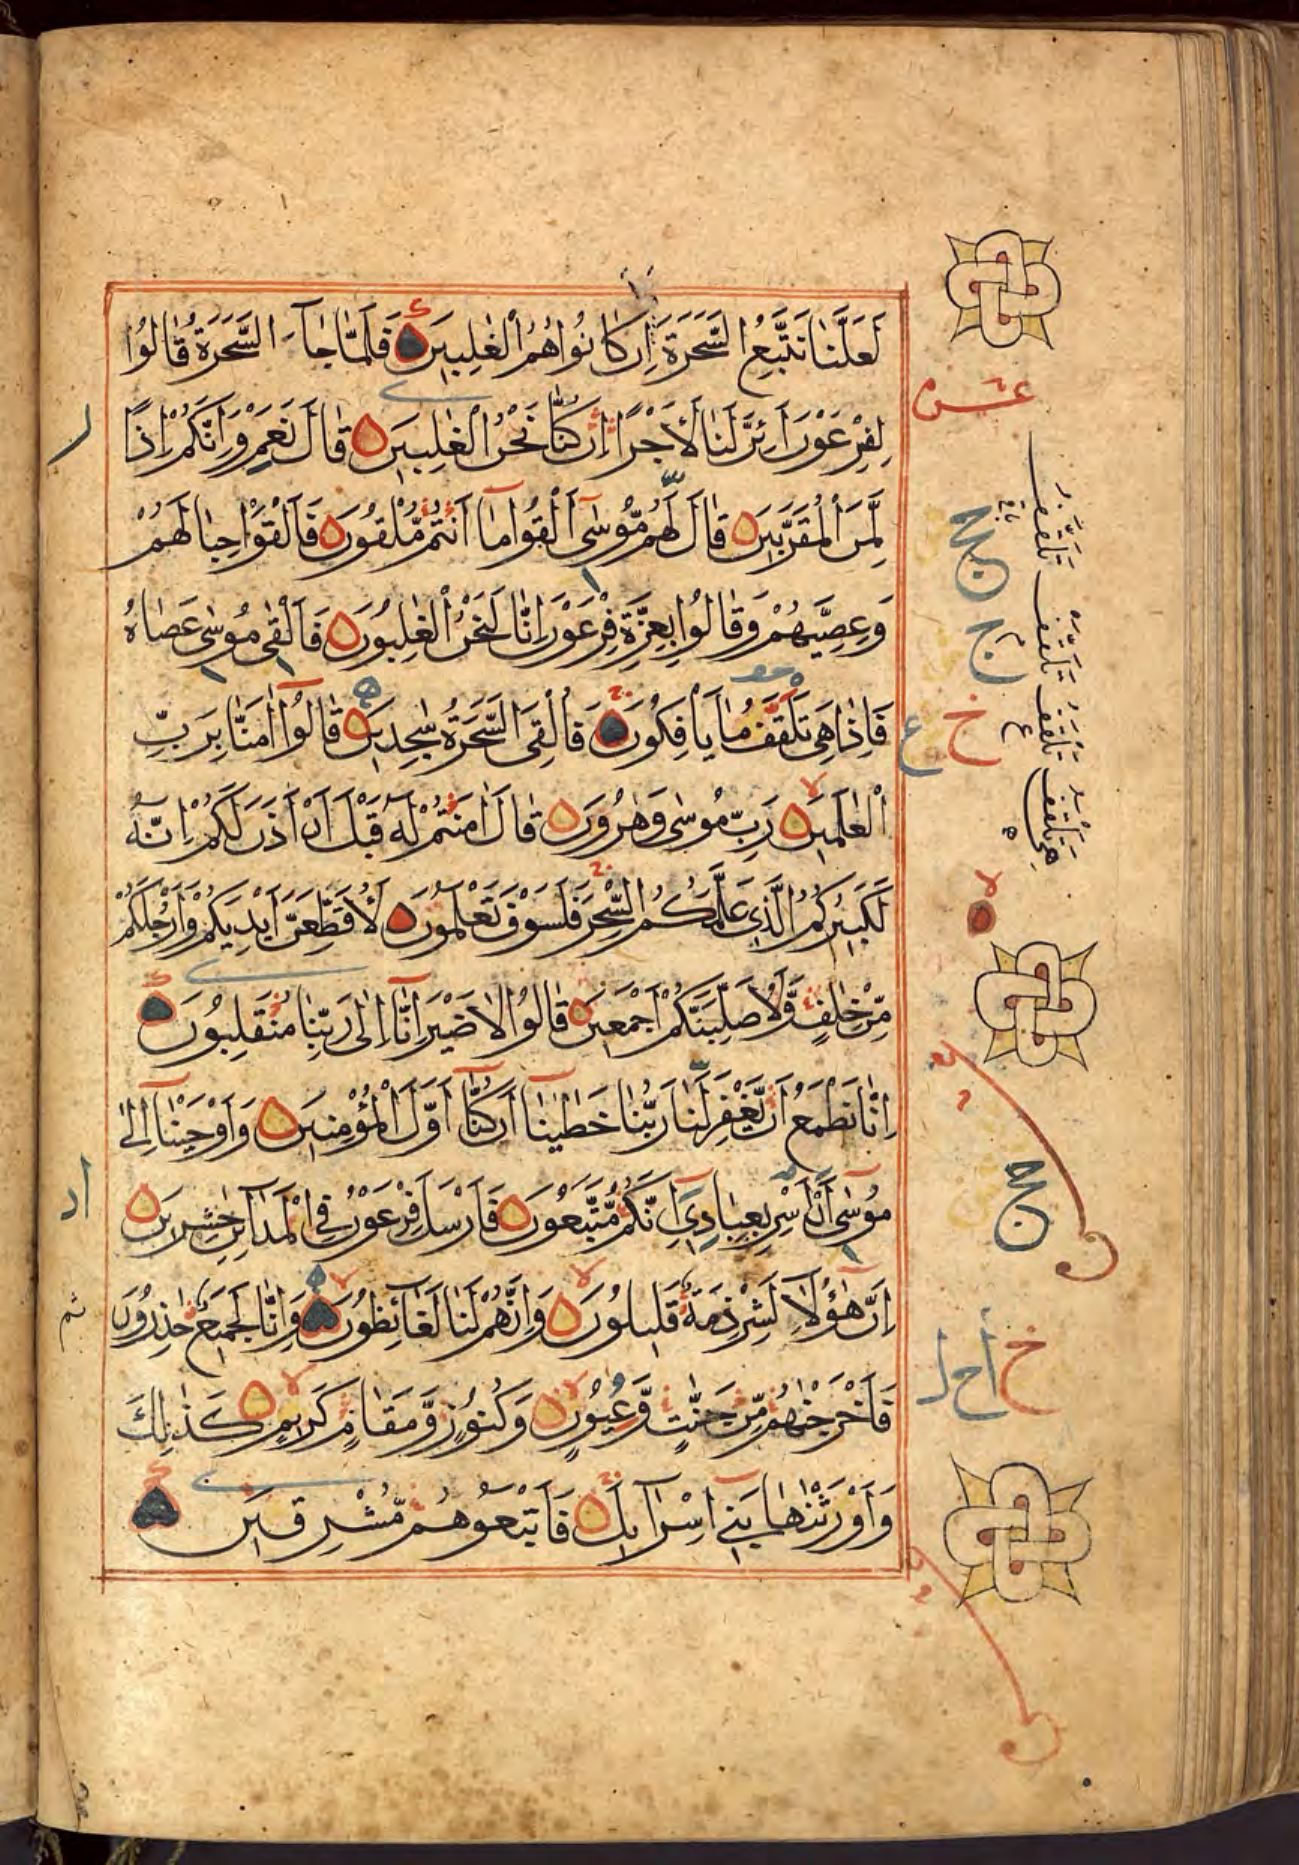 لَعَلَّنَا نَتَّبِعُ السَّحَرَةَ اِنْ كَانُوا هُمُ الْغٰلِبِيْنَ فَلَمَّا جَآءَ السَّحَرَةُ قَالُوا
لِفِرْعَوْنَ اَئِنَّ لَنَا لَاَجْرًا اِنْ كُنَّا نَحْنُ الْغٰلِبِيْنَ قَالَ نَعَمْ وَاِنَّكُمْ اِذًا
لَّمِنَ الْمُقَرَّبِيْنَ قَالَ لَهُمْ مُّوْسٰٓى اَلْقُوْا مَآ اَنْتُمْ مُّلْقُوْنَ فَاَلْقَوْا حِبَالَهُمْ
وَعِصِيَّهُمْ وَقَالُوا بِعِزَّةِ فِرْعَوْنَ اِنَّا لَنَحْنُ الْغٰلِبُوْنَ فَاَلْقٰى مُوْسٰى عَصَاهُ
فَاِذَا هِىَ تَلْقَفُ مَا يَاْفِكُوْنَ فَاُلْقِىَ السَّحَرَةُ سٰجِدِيْنَ قَالُوْٓا اٰمَنَّا بِرَبِّ
الْعٰلَمِيْنَ رَبِّ مُوْسٰى وَهٰرُوْنَ قَالَ اٰمَنْتُمْ لَهٗ قَبْلَ اَنْ اٰذَنَ لَكُمْ اِنَّهٗ
لَكَبِيْرُكُمُ الَّذِىْ عَلَّمَكُمُ السِّحْرَ فَلَسَوْفَ تَعْلَمُوْنَ لَاُقَطِّعَنَّ اَيْدِيَكُمْ وَاَرْجُلَكُمْ
مِّنْ خِلَافٍ وَّلَاُصَلِّبَنَّكُمْ اَجْمَعِيْنَ قَالُوْا لَا ضَيْرَ اِنَّآ اِلٰى رَبِّنَا مُنْقَلِبُوْنَ
اِنَّا نَطْمَعُ اَنْ يَّغْفِرَ لَنَا رَبُّنَا خَطٰيٰنَآ اَنْ كُنَّآ اَوَّلَ الْمُؤْمِنِيْنَ وَاَوْحَيْنَآ اِلٰى
مُوْسٰٓى اَنْ اَسْرِ بِعِبَادِىٓ اِنَّكُمْ مُّتَّبَعُوْنَ فَاَرْسَلَ فِرْعَوْنُ فِى الْمَدَآئِنِ حٰشِرِيْنَ
اِنَّ هٰٓؤُلَآءِ لَشِرْذِمَةٌ قَلِيْلُوْنَ وَاِنَّهُمْ لَنَا لَغَآئِظُوْنَ وَاِنَّا لَجَمِيْعٌ حٰذِرُوْنَ
فَاَخْرَجْنٰهُمْ مِّنْ جَنّٰتٍ وَّعُيُوْنٍ وَكُنُوْزٍ وَّمَقَامٍ كَرِيْمٍ كَذٰلِكَ
وَاَوْرَثْنٰهَا بَنِىٓ اِسْرَآئِيْلَ فَاَتْبَعُوْهُمْ مُّشْرِقِيْنَ
عشر
تلقف
تلقف
تلقف
هى تلقف